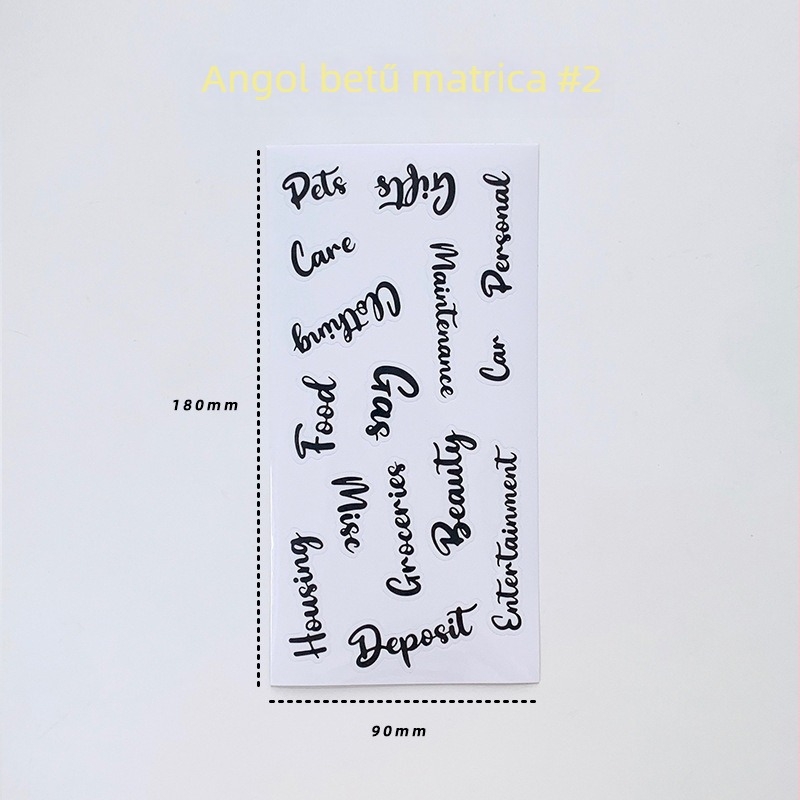 Angol betű matrica #2
Pets
Gifts
Personal
Care
Maintenance
Clothing
Car
Gas
Food
180mm
Beauty
Misc
Groceries
Entertainment
Housing
Deposit
90mm